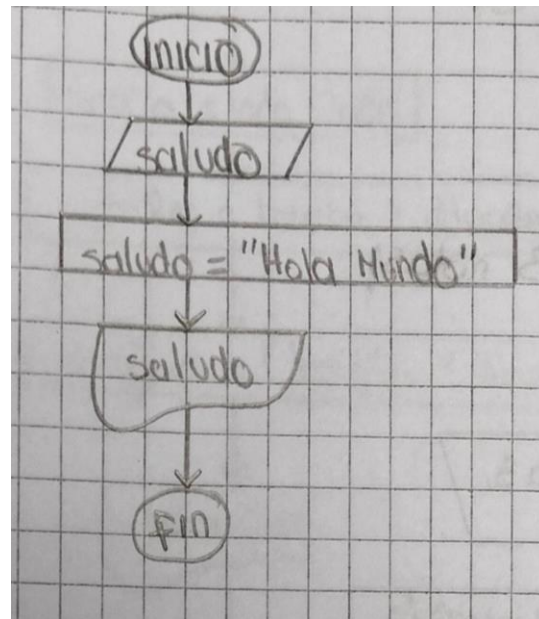 Inicio
saludo
saludo = "Hola Mundo"
saludo
Fin